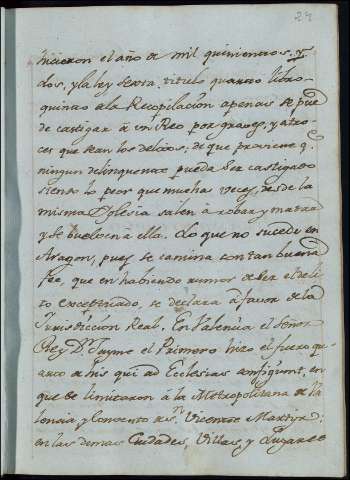 24
hicieron el año de mil quinientos, y
dos, y la ley sexta titulo quarto libro
quinto de la Recopilacion apenas se pue
de castigar à un Reo por graves, y atro-
ces que sean los delitos; de que proviene q.
ningun delinquente pueda ser castigado
siendo lo peor que muchas veces, desde la
misma Yglesia salen à robar, y matar
y se buelven à ella. Lo que no sucede en
Aragon, pues se camina con tan buena
fee, que en habiendo rumor de ser el deli-
to exceptuado, se declara à favor de la
Jurisdiccion Real. En Valencia el Señor
Rey Dn. Jayme el Primero hizo el fuero qu
arto de his qui ad Eclesias confugiunt, en
que se limitaron à la Metropolitana de Va
lencia, y Convento de Sn. Vicente Martyr;
en las demas Ciudades, Villas, y Lugares